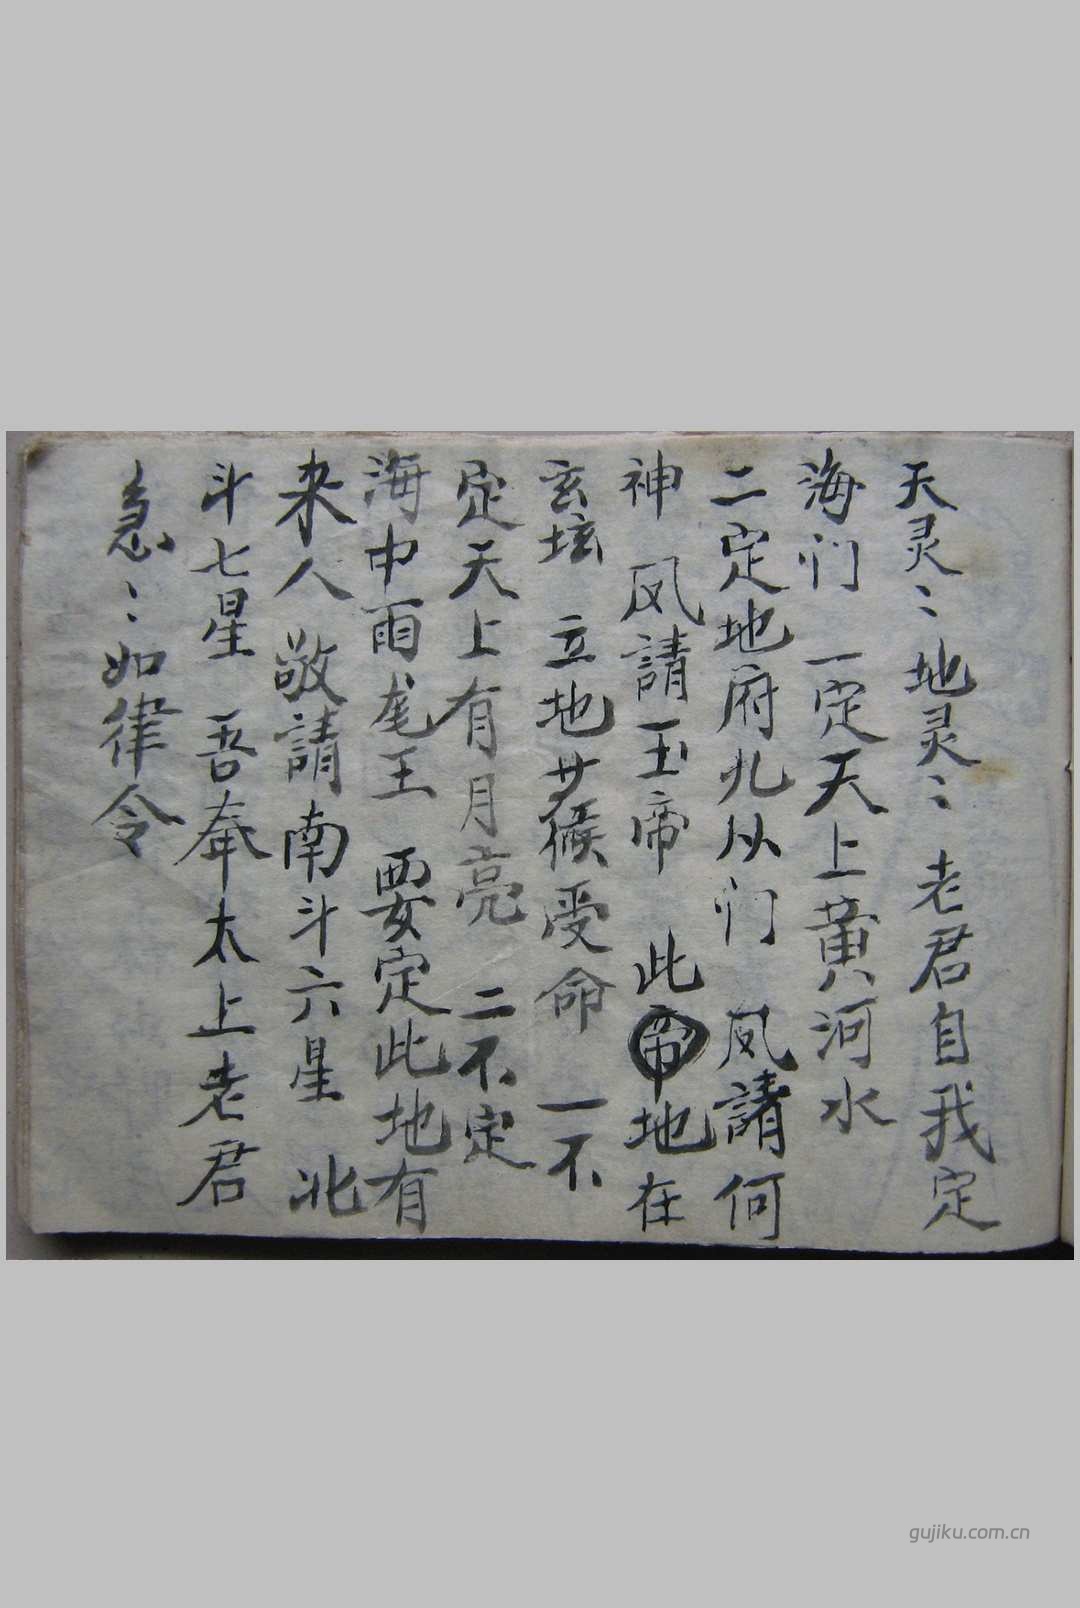 天灵〻地灵〻 老君自我定
海们 一定天上黄河水
二定地府九从们 凤請何
神 凤請玉帝 此地在
玄坛 立地等候受命 一不
定天上有月亮 二不定
海中雨龙王 要定此地有
来人 敬請南斗六星 北
斗七星 吾奉太上老君
急〻如律令
gujiku.com.cn